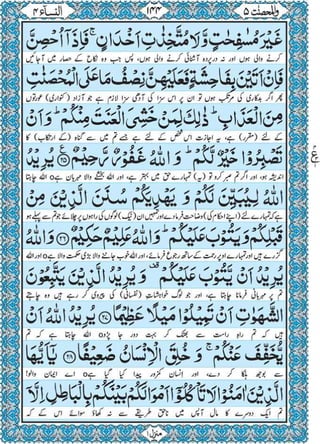 النسآء ٤
١٤٤
والمحصنٰت ٥
غَيْرَ مُسٰفِحٰتٍ وَّلَا مُتَّخِذٰتِ اَخْدَانٍ ۚ فَاِذَاۤ اُحْصِنَّ
کرنے والی ہوں اور نہ درپردہ آشنائی کرنے والی ہوں، پس جب وہ نکاح کے حصار میں آ جائیں
فَاِنْ اَتَيْنَ بِفَاحِشَةٍ فَعَلَيْهِنَّ نِصْفُ مَا عَلَى الْمُحْصَنٰتِ
پھر اگر بدکاری کی مرتکب ہوں تو ان پر اس سزا کی آدھی سزا لازم ہے جو آزاد (کنواری) عورتوں
مِنَ الْعَذَابِ ؕ ذٰلِكَ لِمَنْ خَشِيَ الْعَنَتَ مِنْكُمْ ؕ وَاَنْ
کے لئے (مقرر) ہے، یہ اجازت اس شخص کے لئے ہے جسے تم میں سے گناہ (کے ارتکاب) کا
تَصْبِرُوْا خَيْرٌ لَّكُمْ ؕ وَ اللّٰهُ غَفُوْرٌ رَّحِيْمٌ ۲۵ يُرِيْدُ
اندیشہ ہو، اور اگر تم صبر کرو تو (یہ) تمہارے حق میں بہتر ہے، اور اللہ بخشنے والا مہربان ہے o اللہ چاہتا
اللّٰهُ لِيُبَيِّنَ لَكُمْ وَ يَهْدِيَكُمْ سُنَنَ الَّذِيْنَ مِنْ
ہے کہ تمہارے لئے (اپنے احکام کی) وضاحت فرما دے اور تمہیں ان (نیک) لوگوں کی راہوں پر چلائے جو تم سے پہلے ہو
قَبْلِكُمْ وَ يَتُوْبَ عَلَيْكُمْ ؕ وَ اللّٰهُ عَلِيْمٌ حَكِيْمٌ ۲۶ وَ اللّٰهُ
گزرے ہیں اور تمہارے اوپر رحمت کے ساتھ رجوع فرمائے، اور اللہ خوب جاننے والا بڑی حکمت والا ہے o اور اللہ
يُرِيْدُ اَنْ يَّتُوْبَ عَلَيْكُمْ ۫ وَ يُرِيْدُ الَّذِيْنَ يَتَّبِعُوْنَ
تم پر مہربانی فرمانا چاہتا ہے، اور جو لوگ خواہشاتِ (نفسانی) کی پیروی کر رہے ہیں وہ چاہتے
الشَّهَوٰتِ اَنْ تَمِيْلُوْا مَيْلًا عَظِيْمًا ۲۷ يُرِيْدُ اللّٰهُ اَنْ
ہیں کہ تم راہِ راست سے بھٹک کر بہت دور جا پڑو o اللہ چاہتا ہے کہ تم
يُّخَفِّفَ عَنْكُمْ ۚ وَ خُلِقَ الْاِنْسَانُ ضَعِيْفًا ۲۸ يٰۤاَيُّهَا
سے بوجھ ہلکا کر دے، اور انسان کمزور پیدا کیا گیا ہے o اے ایمان والو!
الَّذِيْنَ اٰمَنُوْا لَا تَاْكُلُوْۤا اَمْوَالَكُمْ بَيْنَكُمْ بِالْبَاطِلِ اِلَّاۤ
تم ایک دوسرے کا مال آپس میں ناحق طریقے سے نہ کھاؤ سوائے اس کے کہ
منزل ١